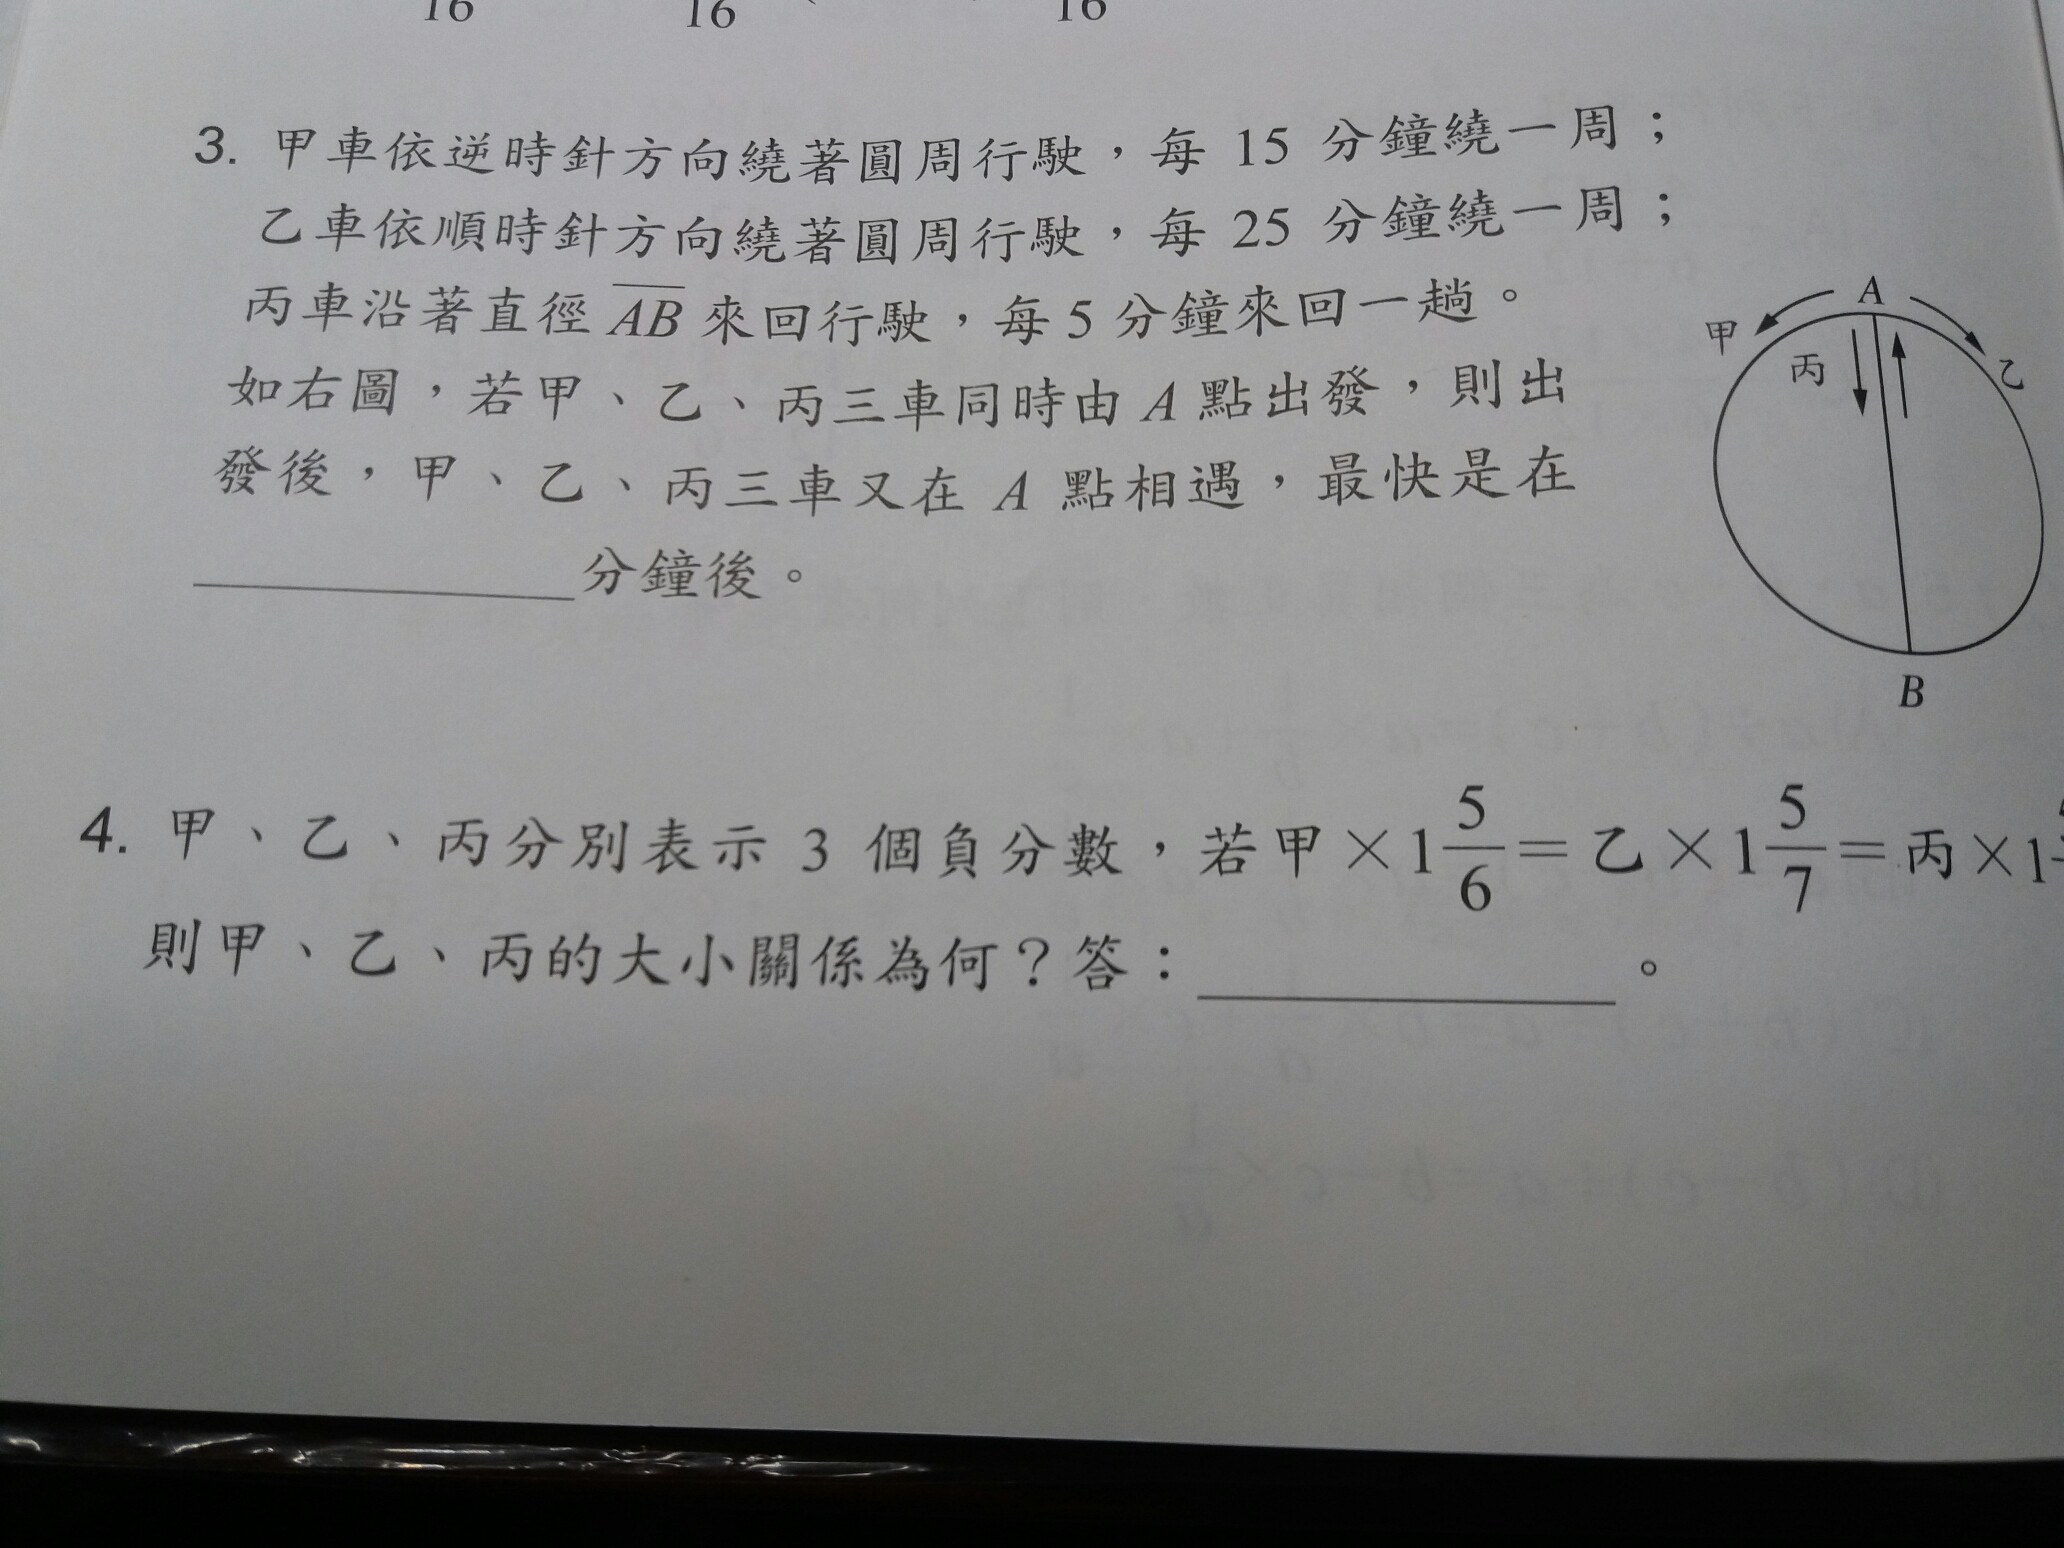 16 16 16
3. 甲車依逆時針方向繞著圓周行駛，每 15 分鐘繞一周；
乙車依順時針方向繞著圓周行駛，每 25 分鐘繞一周；
丙車沿著直徑 AB 來回行駛，每 5 分鐘來回一趟。
如右圖，若甲、乙、丙三車同時由 A 點出發，則出
發後，甲、乙、丙三車又在 A 點相遇，最快是在
分鐘後。
A
甲
丙
乙
B
4. 甲、乙、丙分別表示 3 個負分數，若甲×1 5/6 = 乙×1 5/7 = 丙×1
則甲、乙、丙的大小關係為何？答： 。